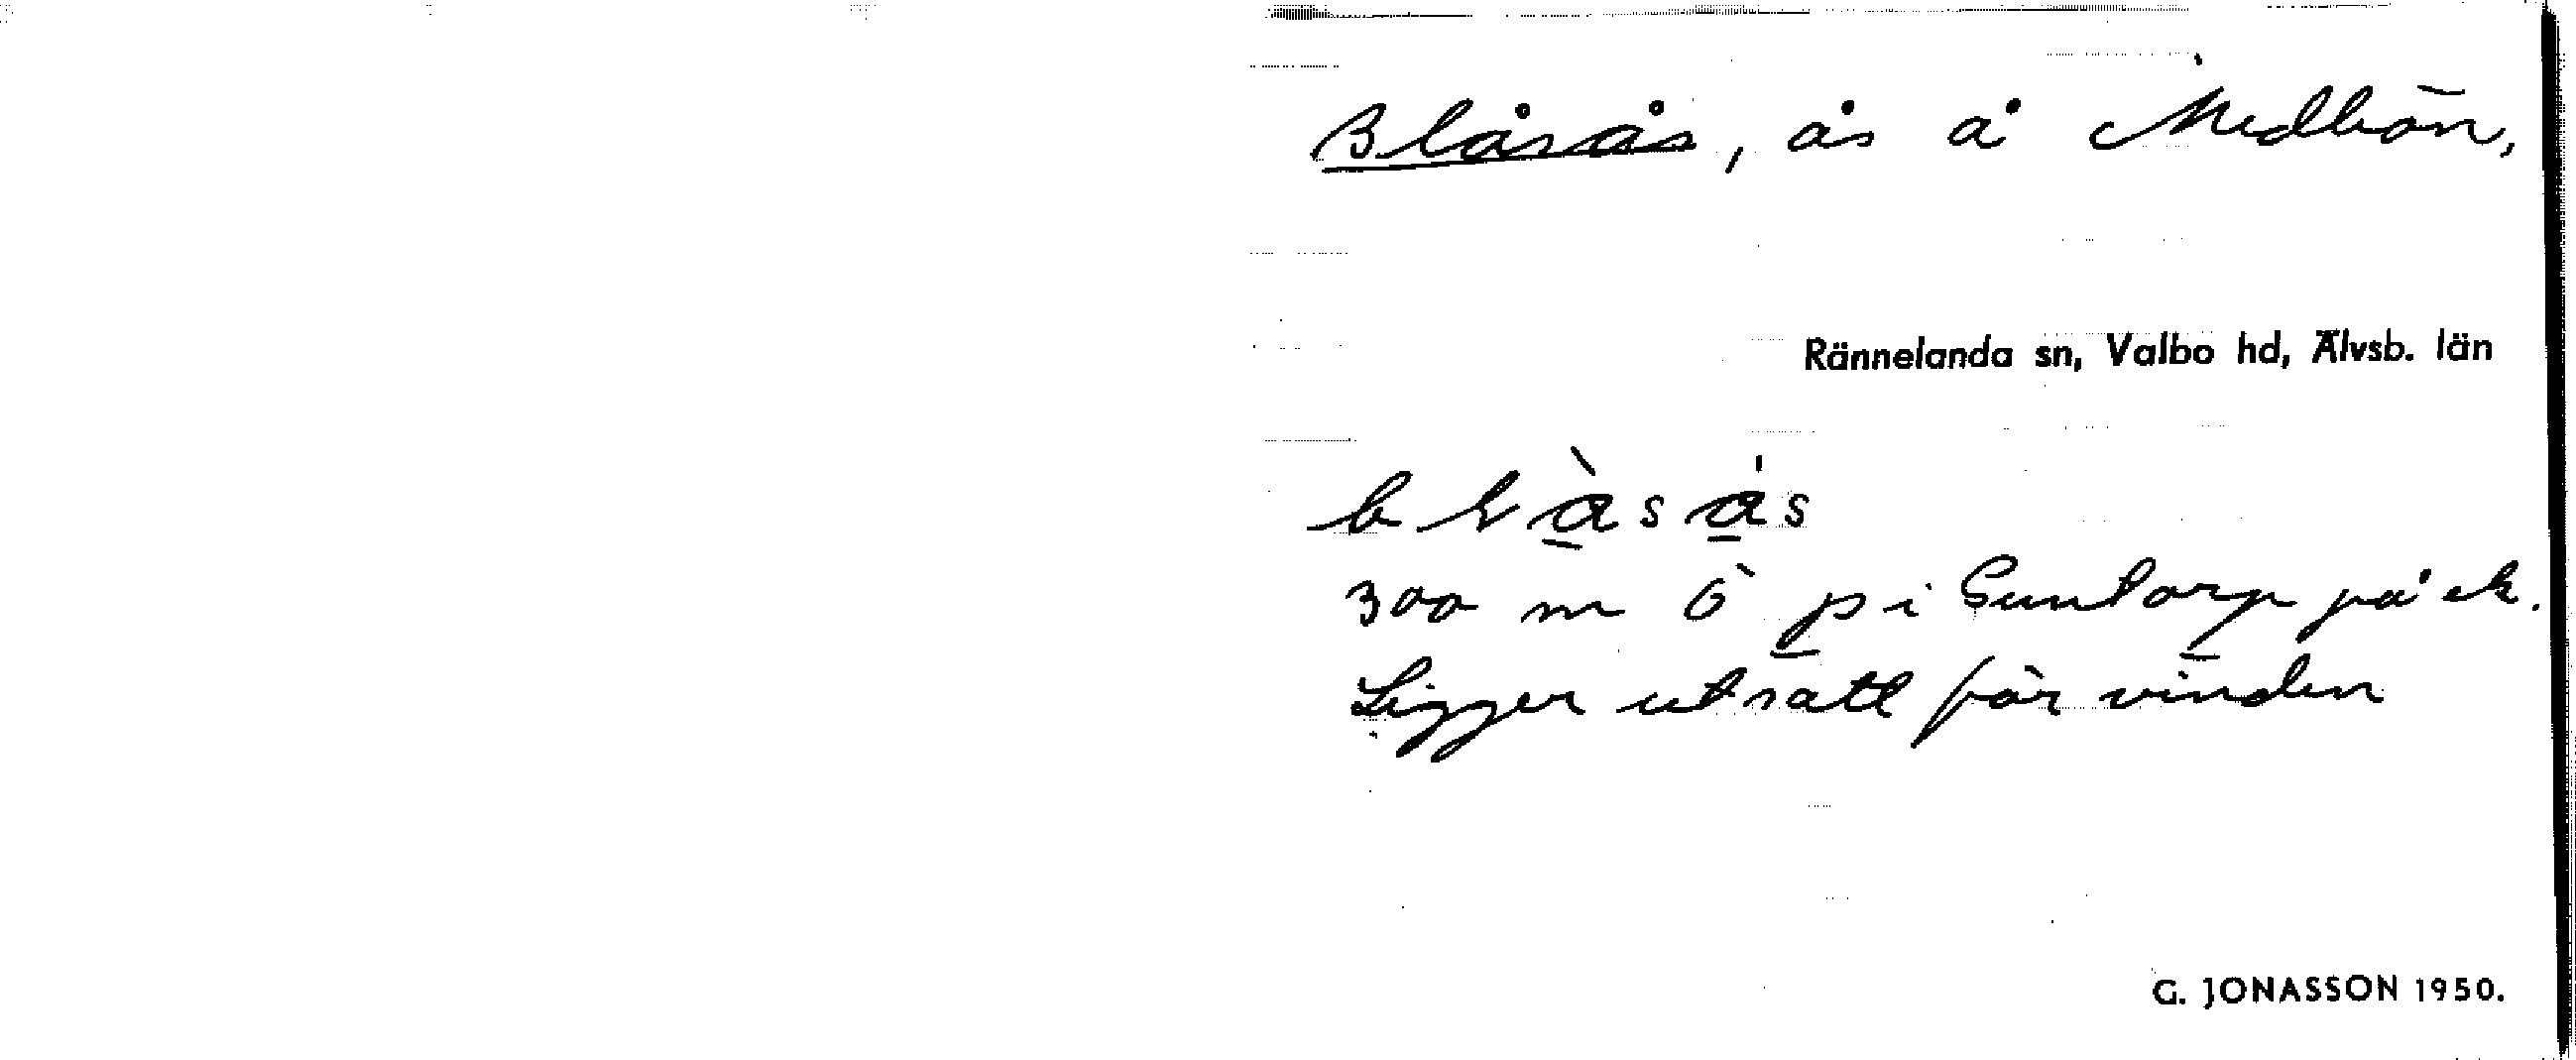 Blåsås, ås å Medbön,
Rännelanda sn, Valbo hd, Älvsb. län
300 m Ö p i Suntorp på ek.
Ligger utsatt för vinden
G. JONASSON 1950.